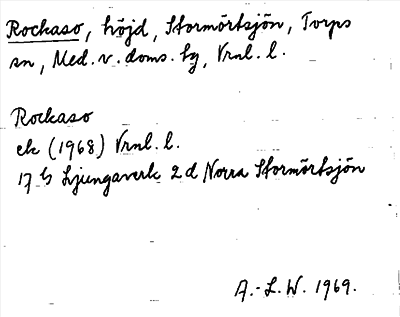 Rockaso, höjd, Stormörtsjön, Torps
sn, Med. v. doms. hg, Vrnl. l.
Rockaso
ek (1968) Vrnl. l.
17 G Ljungaverk 2 d Norra Stormörtsjön
A.-L. W. 1969.